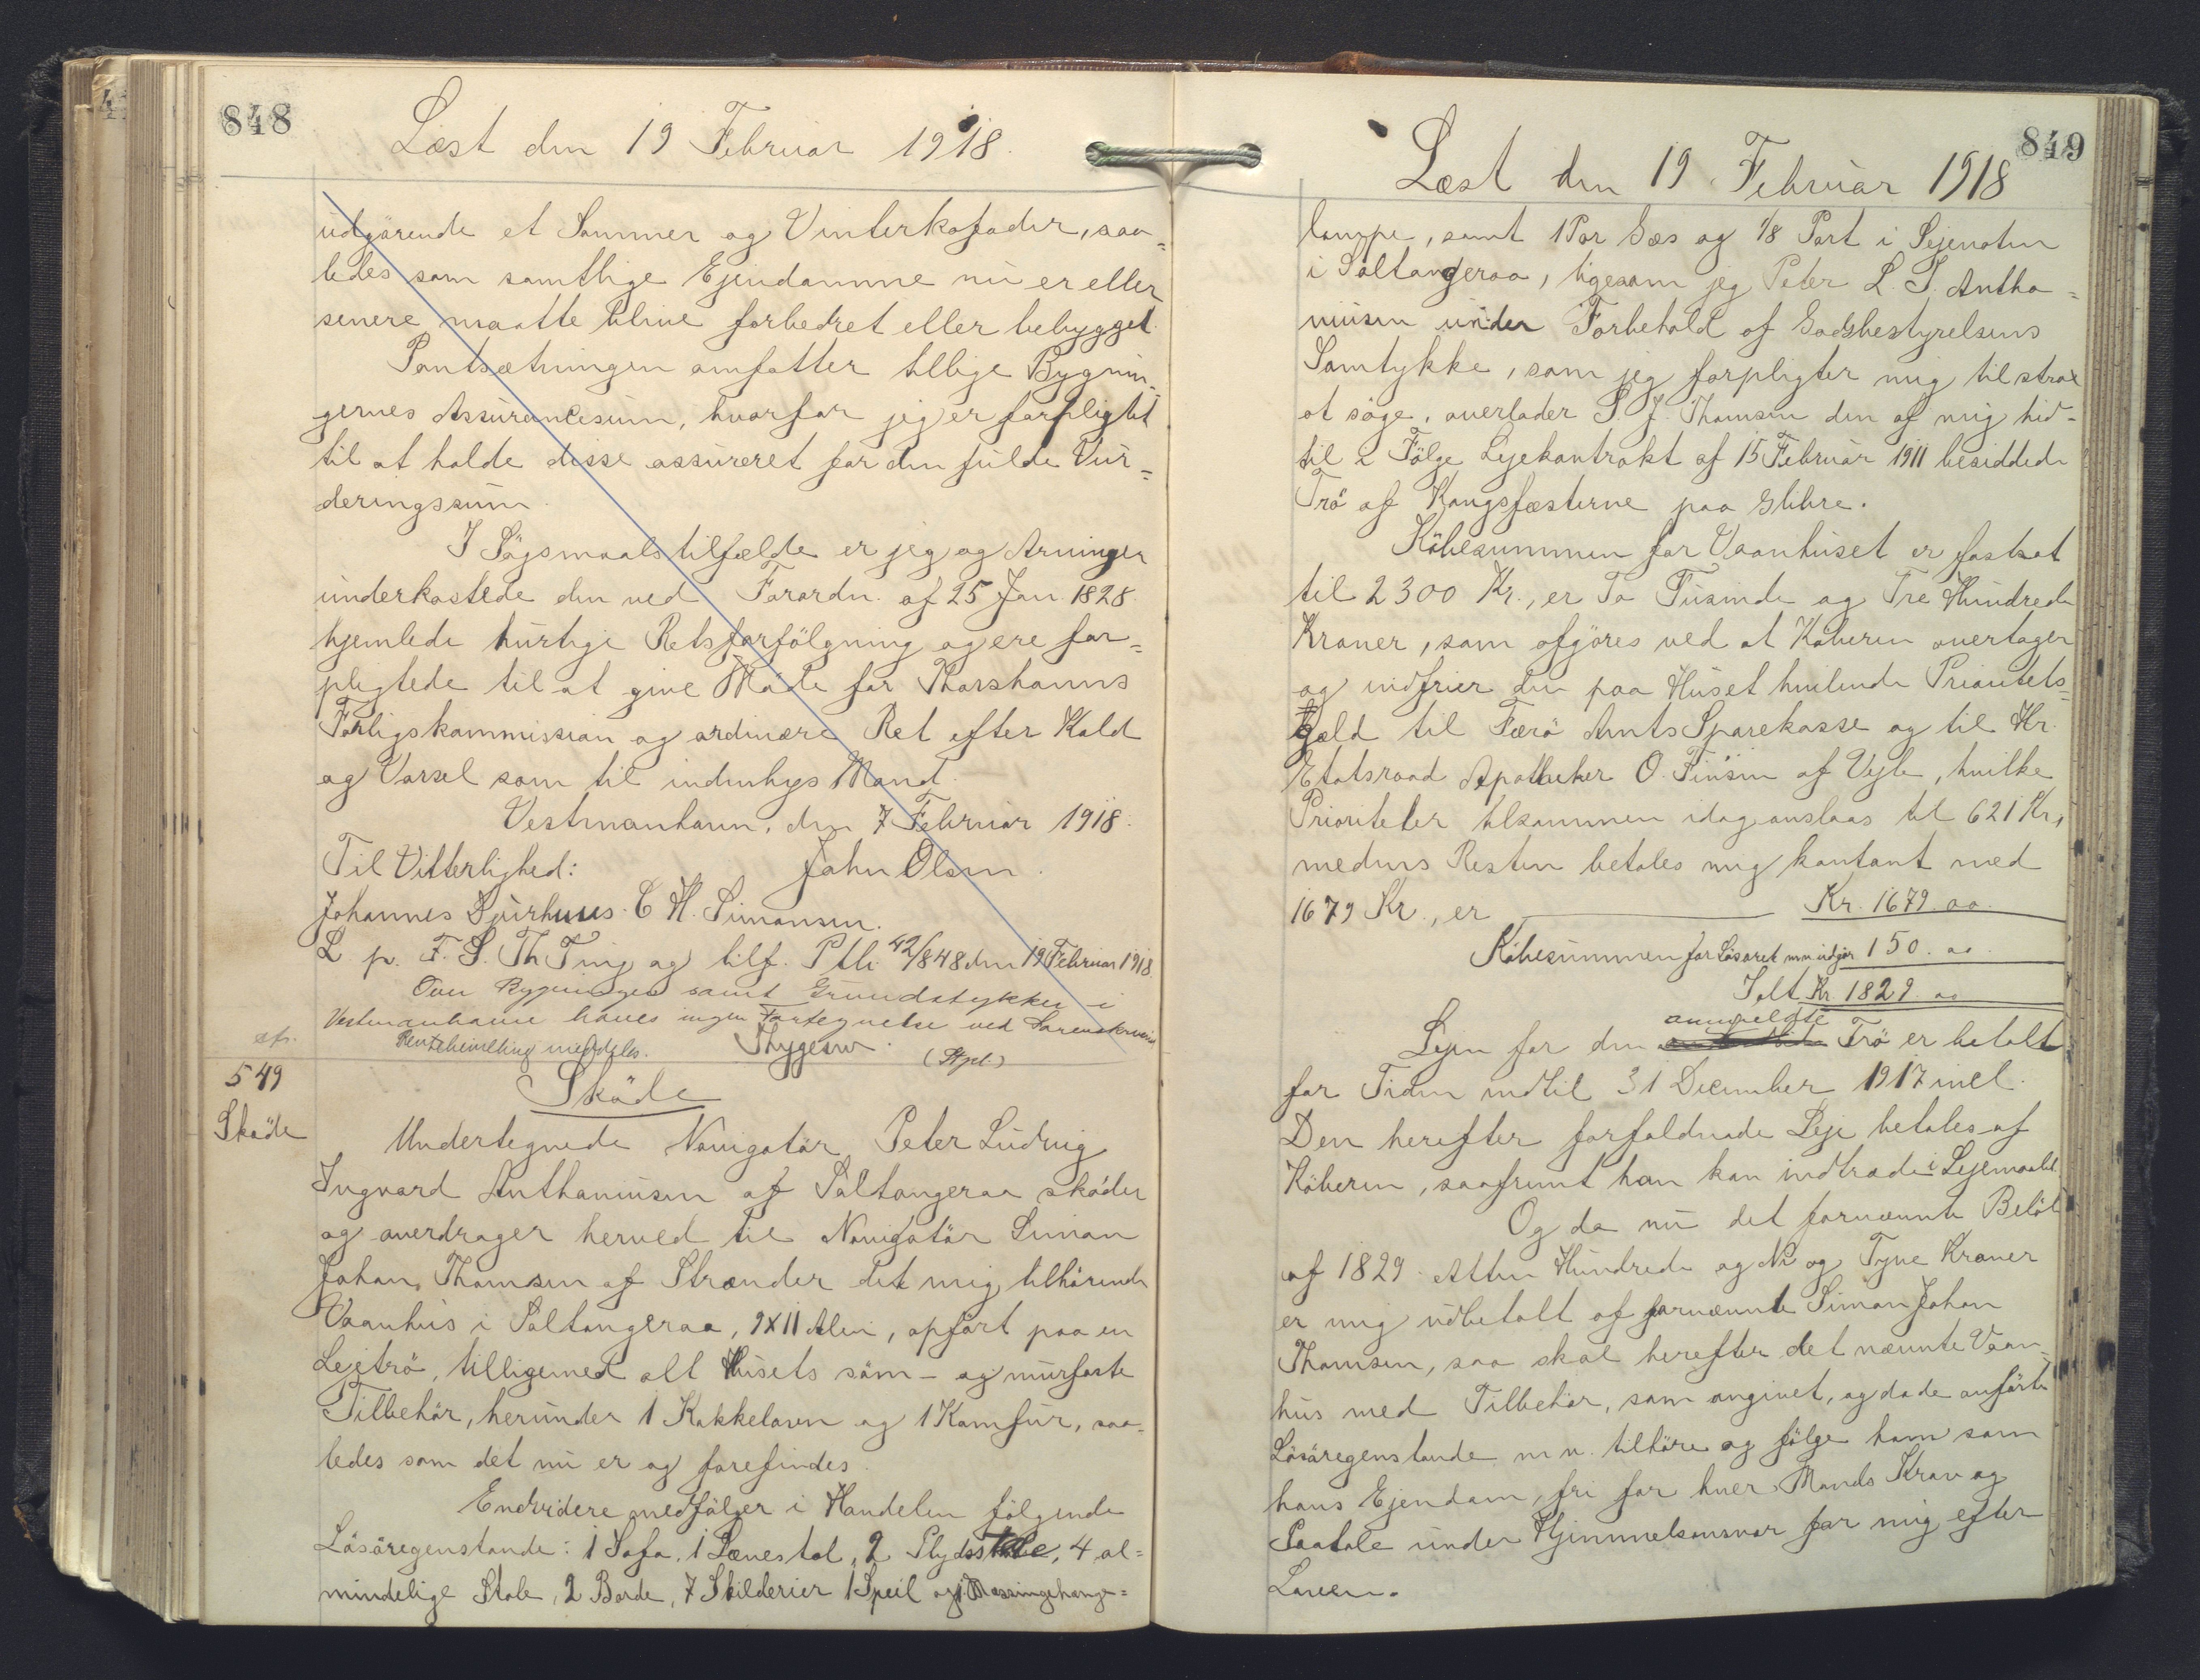 848
Læst den 19 Februar 1918.
udgörende et Sommer og Vinterkofoder, saa=
ledes som samtlige Ejendomme nu er eller
senere maatte blive forbedret eller bebygget.
Pantsætningen omfatter tillige Bygnin=
gernes Assurancesum, hvorfor jeg er forpligtet
til at holde disse assureret for den fulde Vur=
deringssum
I Sögsmaalstilfælde er jeg og Arvinger
underkastede den ved Forordn. af 25 Jan 1828
hjemlede hurtige Retsforfölgning og ere for=
pligtede til at give Möde for Thorshavns
Forligskommission og ordinære Ret efter Kald
og Varsel som til indenbys Mand.
Vestmanhavn, den 7 Februar 1918.
Til Vitterlighed: John Olsen.
Johannes Djurhuus. C H. Simonsen.
L. p. F. S. Th Ting og tilf. Ptb. 42/848 den 19 Februar 1918
Over Bygninger samt Grundstykker i
Vestmanhavn haves ingen Fortegnelse ved Sorenskriveri
Rentebevilling meddeles. Thygesen. (Stpl.)
afs.
549
Sköde
Sköde
Undertegnede Navigatör Peter Ludvig
Ingvard Anthoniusen af Saltangeraa sköder
og overdrager herved til Navigatör Simon
Johan Thomsen af Strænder det mig tilhörende
Vaanhus i Saltangeraa, 9x11 Alen, opfört paa en
Lejetrö, tilligemed alt Husets söm- og murfaste
Tilbehör, herunder 1 Kakkelovn og 1 Komfur, saa=
ledes som det nu er og forefindes.
Endvidere medfölger i Handelen fölgende
Lösöregenstande: 1 Sofa, 1 Lænestol, 2 Plydsstole, 4 al=
mindelige Stole, 2 Borde, 7 Skilderier 1 Speil og 1 Messinghænge=
849
Læst den 19 Februar 1918
lampe, samt 1 Par Gæs og 1/8 Part i Sejenoten
i Saltangeraa, ligesom jeg Peter L. I. Antho=
niusen under Forbehold af Godsbestyrelsens
Samtykke, som jeg forpligter mig til strax
at söge, overlader S. J. Thomsen den af mig hid=
til i Fölge Lejekontrakt af 15 Februar 1911 besiddede
Trö af Kongsfæsterne paa Glibre.
Köbesummen for Vaanhuset er fastsat
til 2300 Kr., er To Tusinde og Tre Hundrede
Kroner, som afgöres ved at Köberen overtager
og indfrier den paa Huset hvilende Prioritets=
Gæld til Færö Amts Sparekasse og til Hr.
Etatsraad Apotheker O. Finsen af Vejle, hvilke
Prioriteter tilsammen idag anslaas til 621 Kr,
medens Resten betales mig kontant med
1679 Kr., er Kr. 1679. oo.
Köbesummen for Lösöret mv udgör 150. oo.
Ialt Kr. 1829. oo
Lejen for den anmeldte Trö er betalt
for Tiden indtil 31 December 1917 incl.
Den herefter forfaldnede Leje betales af
Köberen, saafremt han kan indtræde i Lejemaalet
Og da nu det fornævnte Belöb
af 1829. Atten Hundrede og Ni og Tyve Kroner
er mig udbetalt af fornævnte Simon Johan
Thomsen, saa skal herefter det nævnte Vaan=
hus med Tilbehör, som angivet, og da de anförte
Lösöregenstande m v. tilhöre og fölge ham som
hans Ejendom, fri for hver Mands Krav og
Paatale under Hjemmelsansvar for mig efter
Loven.